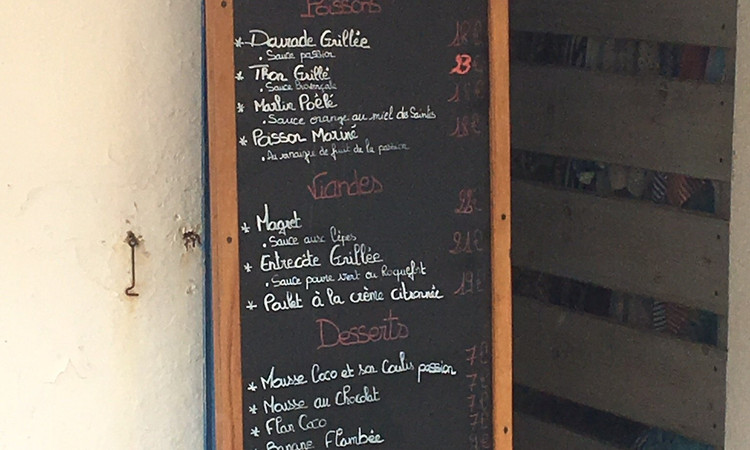 Poissons
* Daurade Grillée 18€
• Sauce passion
* Thon Grillé 23€
• Sauce Provençale
* Marlin Poêlé
• Sauce orange au miel des Saints
* Poisson Mariné 18€
• Au vinaigre de fruit de la passion
Viandes
* Magret
• Sauce aux Cèpes
* Entrecôte Grillée 21€
• Sauce poivre vert ou Roquefort
* Poulet à la crème citronnée 19€
Desserts
* Mousse Coco et son Coulis passion 7€
* Mousse au Chocolat 7€
* Flan Coco 7€
* Banane Flambée